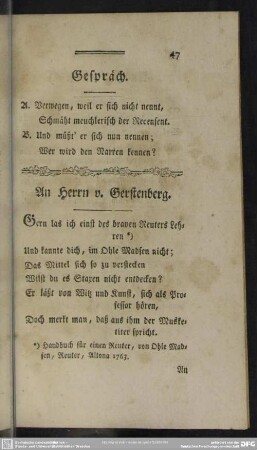 47
Gespräch.
A. Verwegen, weil er sich nicht nennt,
Schmäht meuchlerisch der Recensent.
B. Und müßt' er sich nun nennen;
Wer wird den Narren kennen?
An Herrn v. Gerstenberg.
Gern las ich einst des braven Reuters Leh-
ren *)
Und kannte dich, im Ohle Madsen nicht;
Das Mittel sich so zu verstecken
Wilst du es Stazen nicht entdecken?
Er läßt von Witz und Kunst, sich als Pro-
fessor hören,
Doch merkt man, daß aus ihm der Muske-
tirer spricht.
*) Handbuch für einen Reuter, von Ohle Mad-
sen, Reuter, Altona 1763.
An